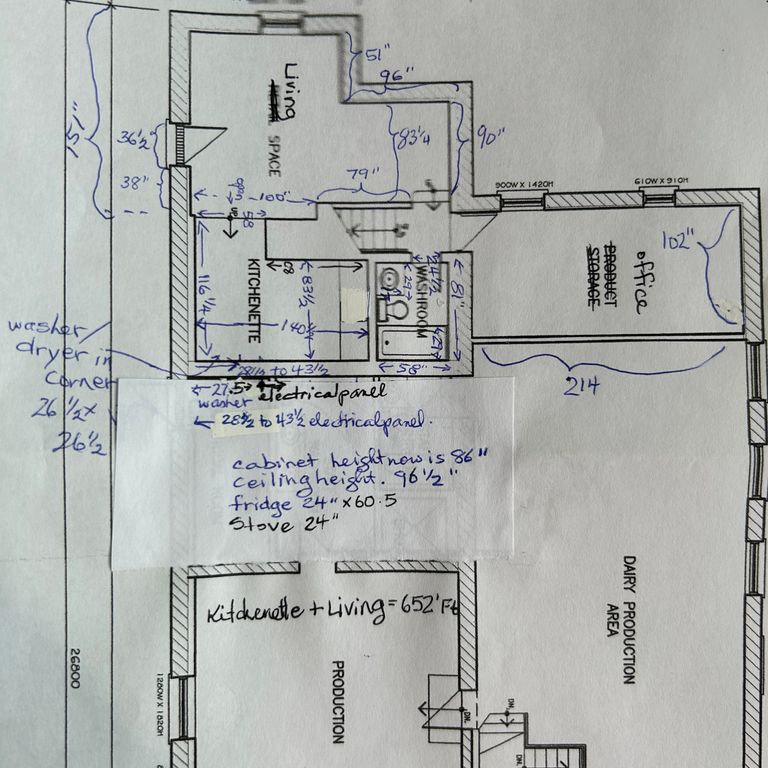 51"
96"
Living
SPACE
151"
36½
38"
83¼
90"
79"
100"
58
UP
900W X 1420H
610W X 910H
102"
office
PRODUCT
STORAGE
KITCHENETTE
116¼
83½
80
140¼
WASHROOM
24½
29
29
81"
58"
28½ to 43½
214
washer
dryer in
corner
26½ x
26½
27.5
electrical panel
washer
28½ to 43½ electrical panel.
cabinet height now is 86"
ceiling height. 96½"
fridge 24" x 60.5
Stove 24"
Kitchenette + Living = 652'Ft
26800
1280W X 1820H
PRODUCTION
DAIRY PRODUCTION
AREA
DN.
DN.
DN.